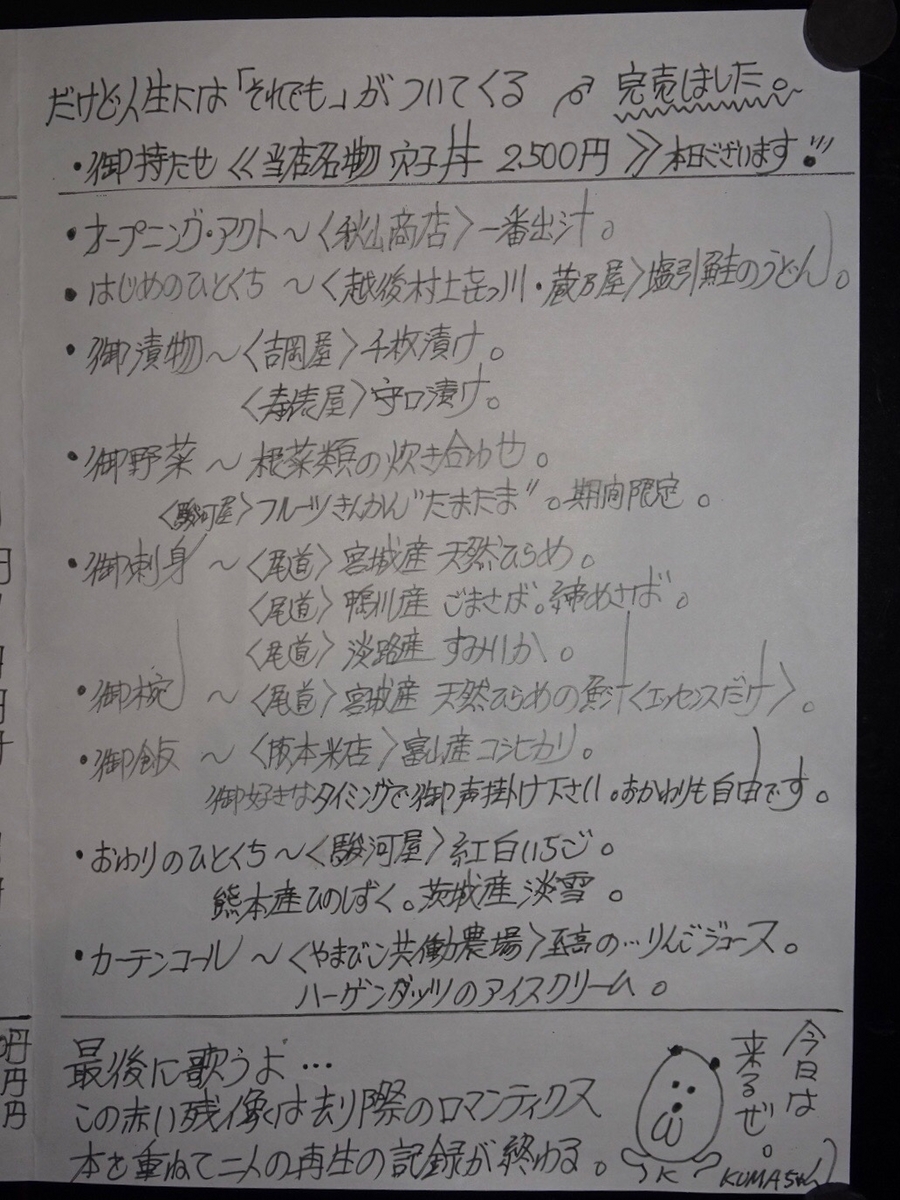 だけど人生には「それでも」がついてくる 完売しました。
・御持たせ≪当店名物 穴子丼 2,500円≫本日ございます!!!
・オープニング・アクト〜〈秋山商店〉一番出汁。
・はじめのひとくち〜〈越後村上㐂っ川・蔵乃屋〉塩引鮭のうどん。
・御漬物〜〈吉岡屋〉千枚漬け。
〈寿俵屋〉守口漬け。
・御野菜〜根菜類の炊き合わせ。
〈駿河屋〉フルーツきんかん"たまたま"。期間限定。
・御刺身〜〈尾道〉宮城産 天然ひらめ。
〈尾道〉鴨川産 ごまさば。締めさば。
〈尾道〉淡路産 すみいか。
・御椀〜〈尾道〉宮城産 天然ひらめの魚汁〈エッセンスだけ〉。
・御飯〜〈阪本米店〉富山産コシヒカリ。
御好きなタイミングで御声掛け下さい。おかわりも自由です。
・おわりのひとくち〜〈駿河屋〉紅白いちご。
熊本産ひのしずく。茨城産淡雪。
・カーテンコール〜〈やまびこ共働農場〉至高の…りんごジュース。
ハーゲンダッツのアイスクリーム。
最後に歌うよ…
この赤い残像は去り際のロマンティクス
本を重ねて二人の再生の記録が終わる。
今日は
来るぜ。
K
KUMAちゃん
円
円
円